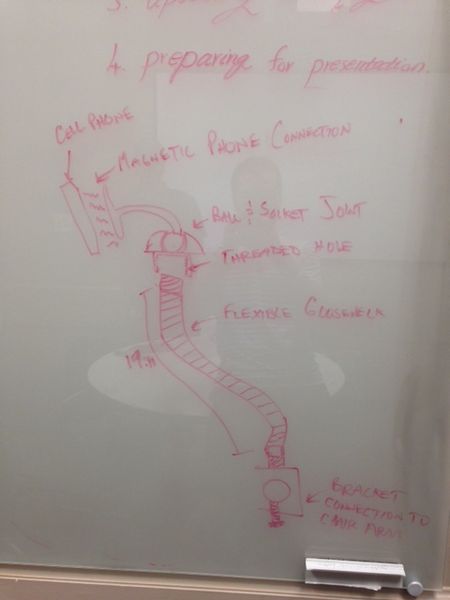 4. preparing for presentation.
CELL PHONE
MAGNETIC PHONE CONNECTION
BALL & SOCKET JOINT
THREADED HOLE
FLEXIBLE GOOSENECK
19in
BRACKET
CONNECTION TO
CHAIR ARM